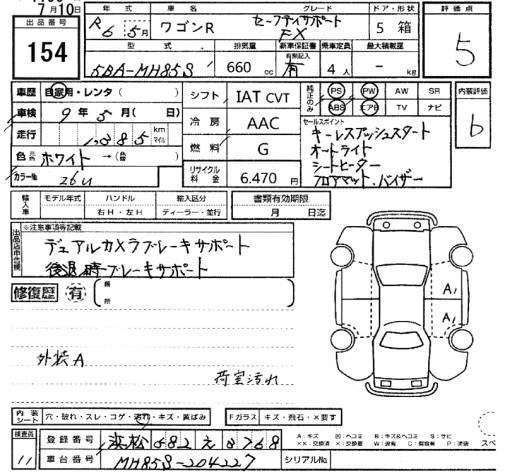 7月10日
出品番号 154
年式 R6 5月
車名 ワゴンR
グレード セーフティサポート FX
ドア・形状 5 箱
評価点 5
型式 5BA-MH85S
排気量 660 cc
新車保証書 有
乗車定員 4人
最大積載量 - kg
車歴 自家用・レンタ( )
車検 9年5月( 日)
走行 1,385 km マイル
色 ホワイト →( )
カラーNo 26U
シフト IAT CVT
冷房 AAC
燃料 G
リサイクル料金 6,470円
純正のみ PS PW AW SR
ABS エアB TV ナビ
セールスポイント
キーレスプッシュスタート
オートライト
シートヒーター
フロアマット、バイザー
内装評価 b
輸入車 モデル年式 ハンドル 右H・左H 輸入区分 ディーラー・並行
書類有効期限 月 日迄
※注意事項等記載
デュアルカメラブレーキサポート
後退時ブレーキサポート
修復歴 有 箇所
A1
A1
外装A
荷室汚れ
内装シート 穴・破れ・スレ・コゲ・汚れ・キズ・黄ばみ
Fガラス キズ・飛石・×要す
検査員 11
登録番号 浜松 582 え 8768
車台番号 MH85S-204227
シリアルNo.